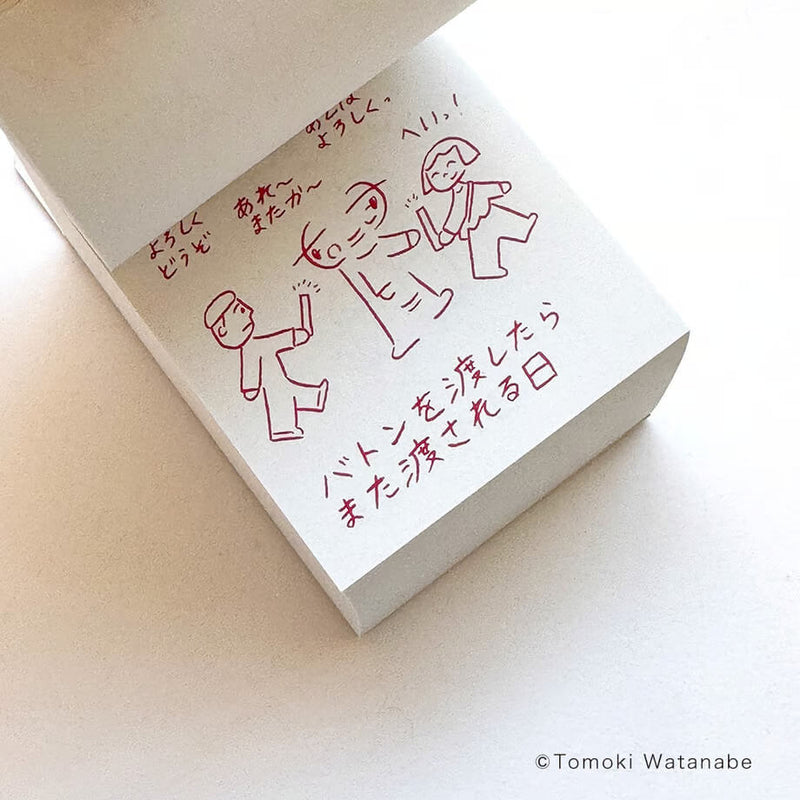 あとは
よろしくっ
へいっ!
あれ〜
またか〜
よろしく
どうぞ
バトンを渡したら
また渡される日
©Tomoki Watanabe